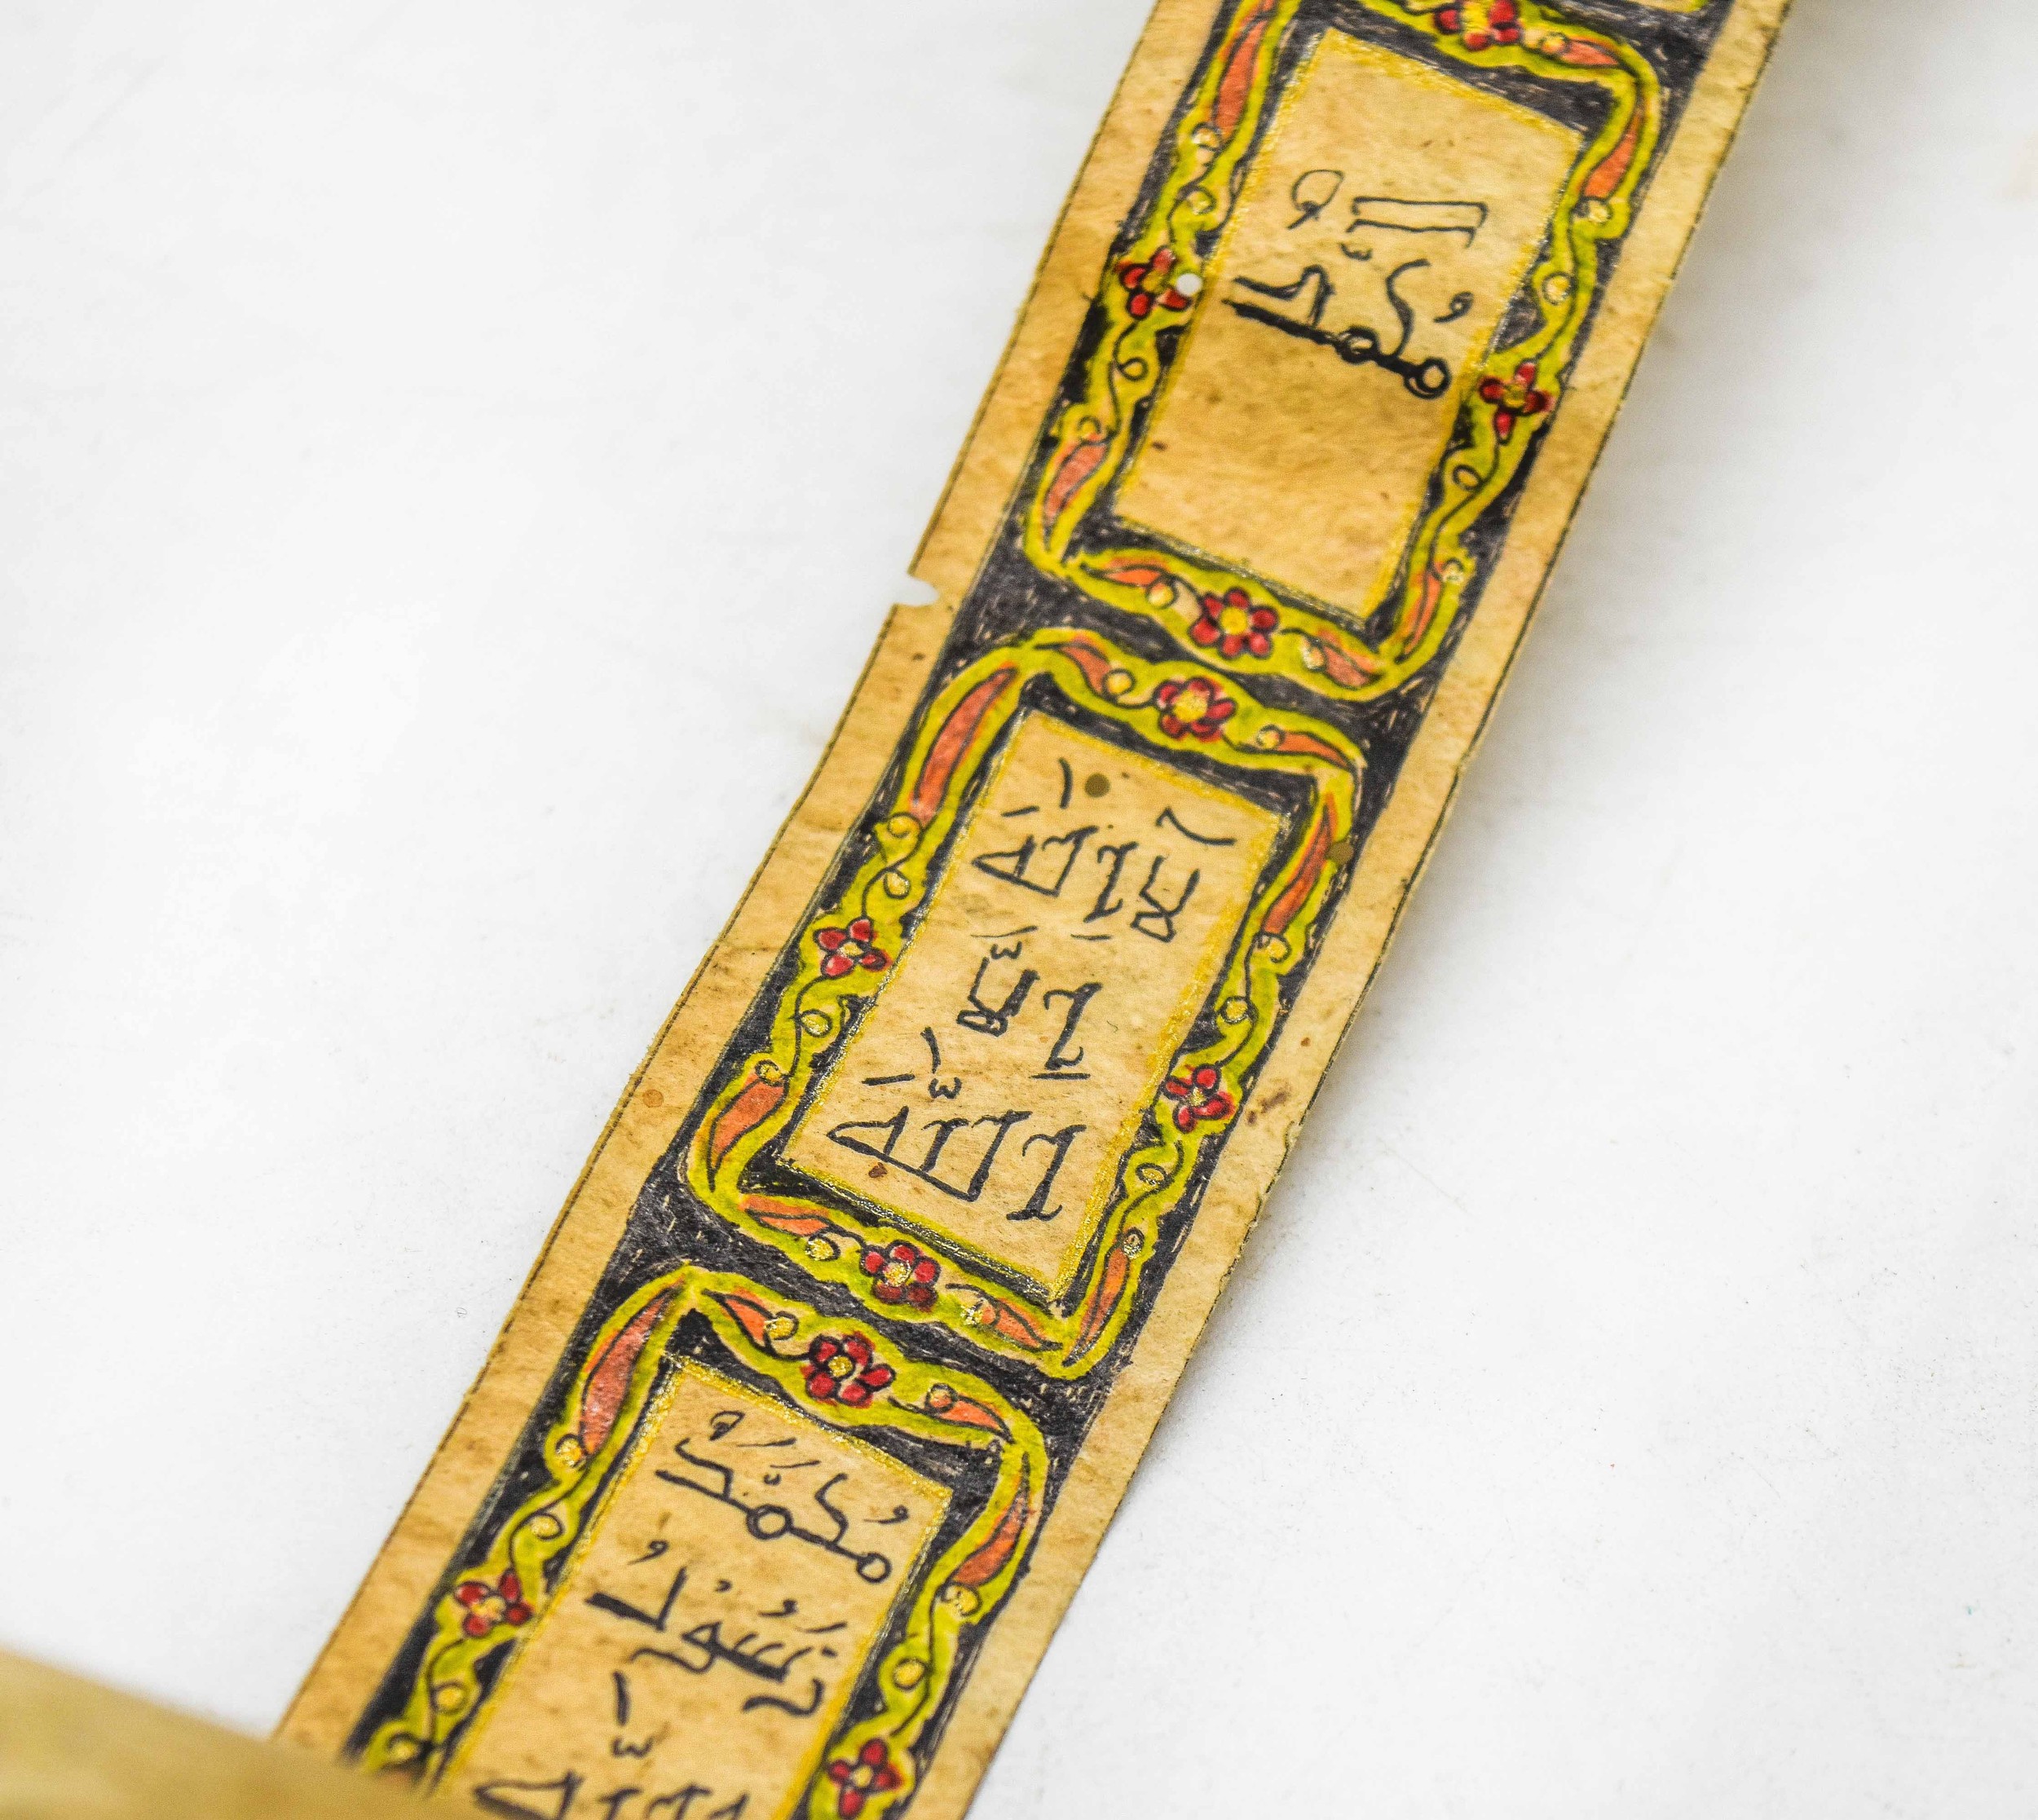 مُحمّد
لَا إِلٰهَ
إِلَّا
اللّٰهُ
مُحَمَّدٌ
رَسُولُ
اللّٰه